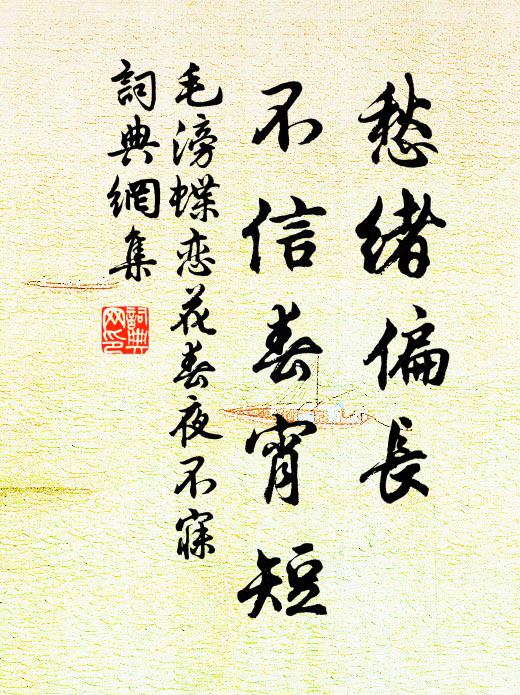 愁緒偏長
不信春宵短
毛滂蝶恋花春夜不寐
詞典網集
詞典
网印